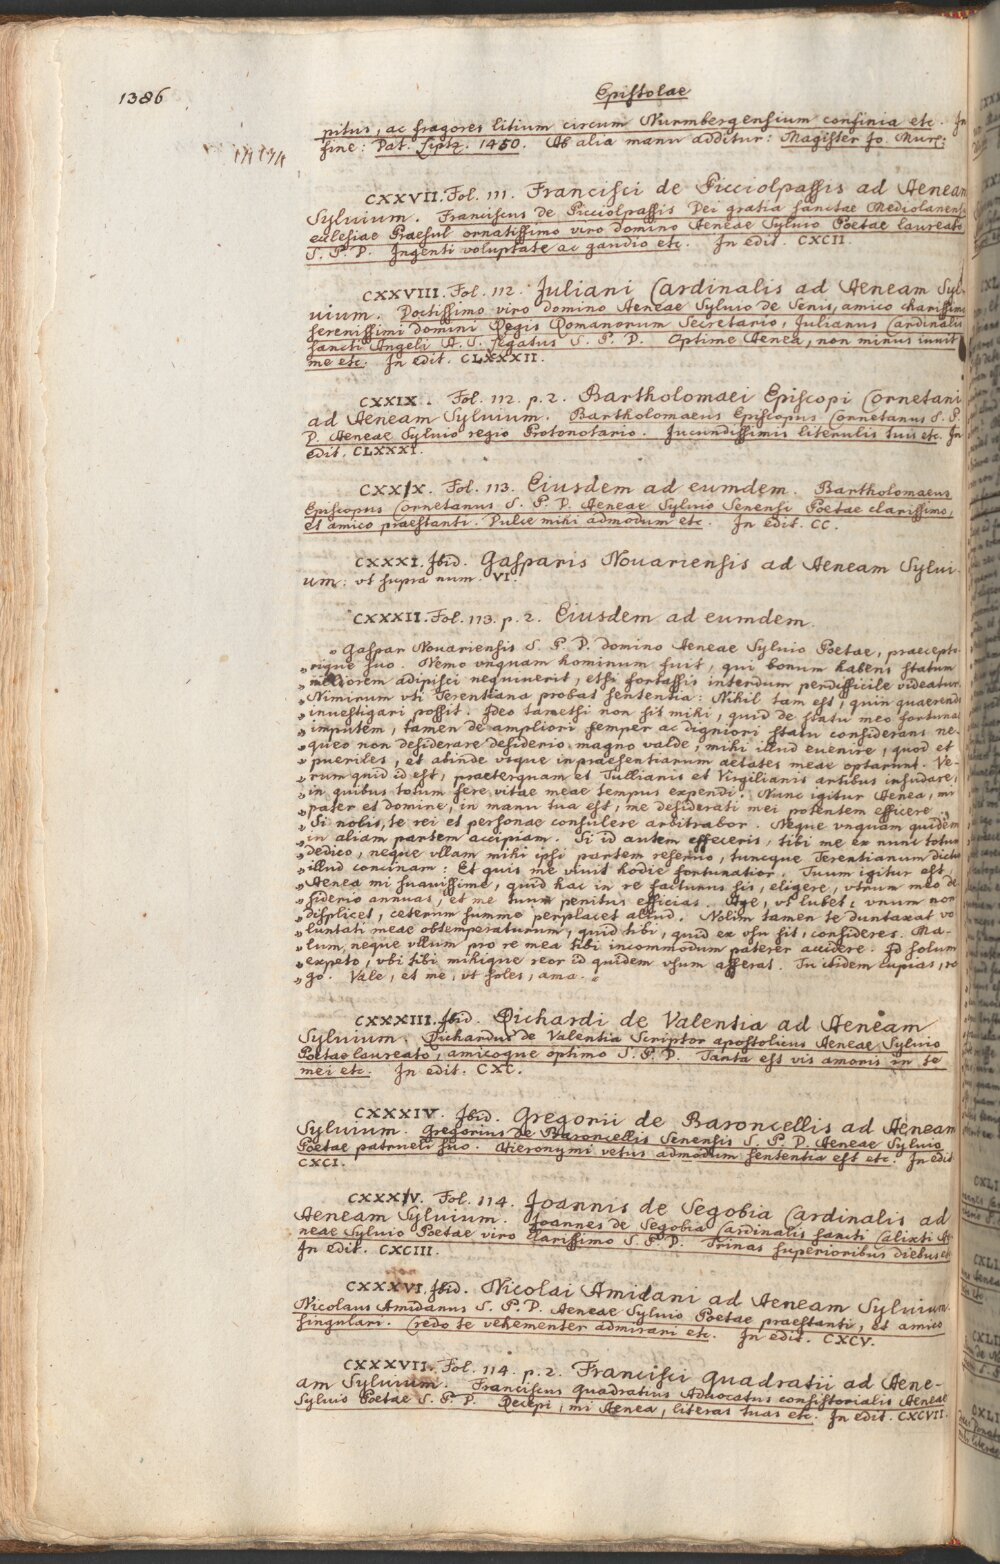 1386
Epistolae
pitus, ac fragores litium circum Nurmbergensium confinia etc. In
fine: Dat. Liptz. 1450. Ab alia manu additur: Magister Jo. Murc:
CXXVII. Fol. 111. Francisci de Picciolpassis ad Aeneam
Sylvium. Franciscus de Picciolpassis Dei gratia sanctae Mediolanensis
ecclesiae Praesul ornatissimo viro domino Aeneae Sylvio Poetae laureato
S. P. D. Ingenti voluptate ac gaudio etc. In edit. CXCII.
CXXVIII. Fol. 112. Juliani Cardinalis ad Aeneam Syl-
vium. Doctissimo viro domino Aeneae Sylvio de Senis, amico charissimo
serenissimi domini Regis Romanorum Secretario, Julianus Cardinalis
sancti Angeli A. S. Legatus S. P. D. Optime Aenea, non minus iuvit
me etc. In edit. CLXXXII.
CXXIX. Fol. 112. p. 2. Bartholomaei Episcopi Cornetani
ad Aeneam Sylvium. Bartholomaeus Episcopus Cornetanus S. P.
D. Aeneae Sylvio regio Protonotario. Jucundissimis literulis tuis etc. In
edit. CLXXXI.
CXXX. Fol. 113. Eiusdem ad eumdem. Bartholomaeus
Episcopus Cornetanus S. P. D. Aeneae Sylvio Senensi Poetae clarissimo,
et amico praestanti. Dulce mihi admodum etc. In edit. CC.
CXXXI. Ibid. Gasparis Novariensis ad Aeneam Sylvi-
um: vt supra num. VI.
CXXXII. Fol. 113. p. 2. Eiusdem ad eumdem.
" Gaspar Novariensis S. P. D. domino Aeneae Sylvio Poetae, praecepto-
" rique suo. Nemo vnquam hominum fuit, qui bonum habens statum
" meliorem adipisci nequiverit, etsi fortassis interdum perdifficile videatur.
" Nimirum vti Terentiana probat sententia: Nihil tam est, quin quaerendo
" investigari possit. Ideo tametsi non sit mihi, quid de statu meo fortunae
" imputem, tamen de ampliori semper ac digniori statu considerans ne-
" queo non desiderare desiderio magno valde, mihi illud evenire, quod et
" pueriles, et abinde vsque in praesentiarum aetates meae optarunt. Ve-
" rum quid id est, praeterquam et Tullianis et Virgilianis artibus insudare,
" in quibus totum fere vitae meae tempus expendi. Nunc igitur Aenea, mi
" pater et domine, in manu tua est, me desiderati mei potentem efficere.
" Si nobis, te rei et personae consulere arbitrabor. Neque vnquam quidem
" in aliam partem accipiam. Si id autem effeceris, tibi me ex nunc totum
" dedico, neque vllam mihi ipsi partem reservo, tuncque Terentianum dictum
" illud concinam: Et quis me vivit hodie fortunatior. Tuum igitur est,
" Aenea mi suavissime, quid hac in re facturus sis, eligere, vtrum meo de-
" siderio annuas, et me tuum penitus efficias. Age, vt lubet; vnum non
" displicet, ceterum summe perplacet aliud. Nolim tamen te duntaxat vo-
" luntati meae obtemperaturum, quid tibi, quid ex vsu sit, consideres. Ma-
" lum neque vllum pro re mea tibi incommodum paterer accidere. Id solum
" expeto, vbi tibi mihique reor id quidem vsum afferat. Tu itidem cupias, ro-
" go. Vale, et me, vt soles, ama. "
CXXXIII. Ibid. Richardi de Valentia ad Aeneam
Sylvium. Richardus de Valentia Scriptor apostolicus Aeneae Sylvio
Poetae laureato, amicoque optimo S. P. D. Tanta est vis amoris in te
mei etc. In edit. CXC.
CXXXIV. Ibid. Gregorii de Baroncellis ad Aeneam
Sylvium. Gregorius de Baroncellis Senensis S. P. D. Aeneae Sylvio
Poetae patrueli suo. Hieronymi vetus admodum sententia est etc. In edit
CXCI.
CXXXV. Fol. 114. Joannis de Segobia Cardinalis ad
Aeneam Sylvium. Joannes de Segobia Cardinalis sancti Calixti Ae-
neae Sylvio Poetae viro clarissimo S. P. D. Trinas superioribus diebus etc
In edit. CXCIII.
CXXXVI. Ibid. Nicolai Amidani ad Aeneam Sylvium.
Nicolaus Amidanus S. P. D. Aeneae Sylvio Poetae praestanti, et amico
singulari. Credo te vehementer admirari etc. In edit. CXCV.
CXXXVII. Fol. 114. p. 2. Francisci Quadratii ad Aene-
am Sylvium. Franciscus Quadratius Advocatus consistorialis Aeneae
Sylvio Poetae S. P. D. Recepi, mi Aenea, literas tuas etc. In edit. CXCVII.